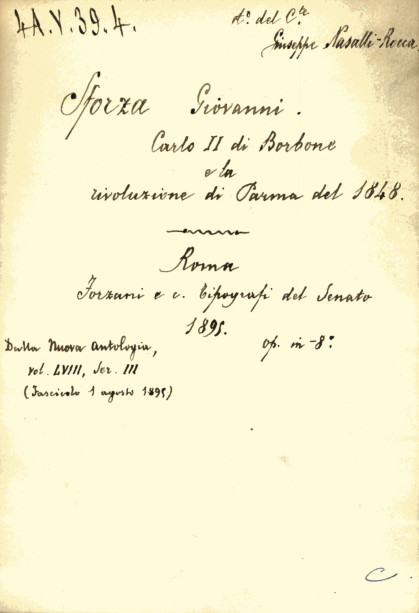 4A.V.39.4.
d.° del C.te
Giuseppe Nasalli-Rocca.
Sforza Giovanni.
Carlo II di Borbone
e la
rivoluzione di Parma del 1848.
Roma
Forzani e c. Tipografi del Senato
1895.
op. in-8°
Dalla Nuova Antologia,
vol. LVIII, Ser. III
(Fascicolo 1 agosto 1895)
C.